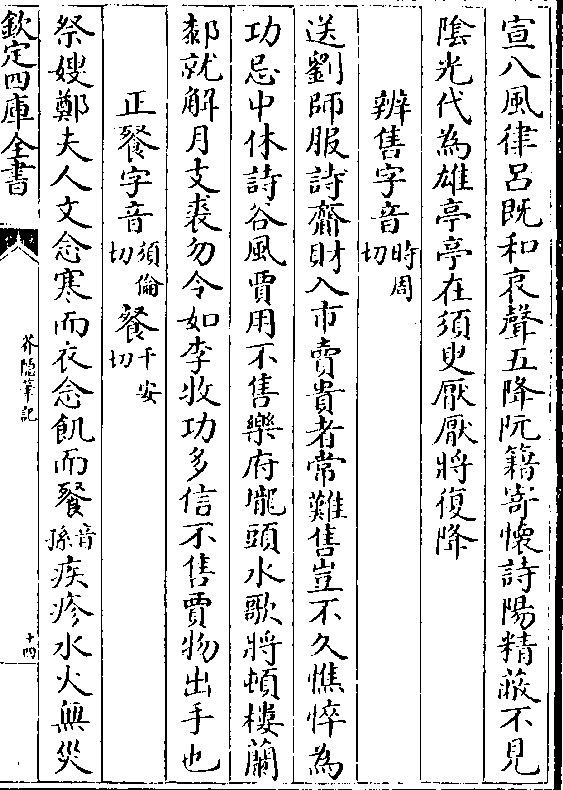 宣八風律呂既和哀聲五降阮籍寄懷詩陽精蔽不見
陰光代為雄亭亭在須臾厭厭將復降
辨售字音時周切
送劉師服詩齎財入市賣貴者常難售豈不久憔悴為
功忌中休詩谷風賈用不售樂府隴頭水歌將頓樓蘭
就解月支裘勿令如李牧功多信不售賈物出手也
正餐字音須倫切餐千安切
祭嫂鄭夫人文念寒而衣念飢而餐音孫疾疹水火無災
欽定四庫全書
芥隱筆記
十四